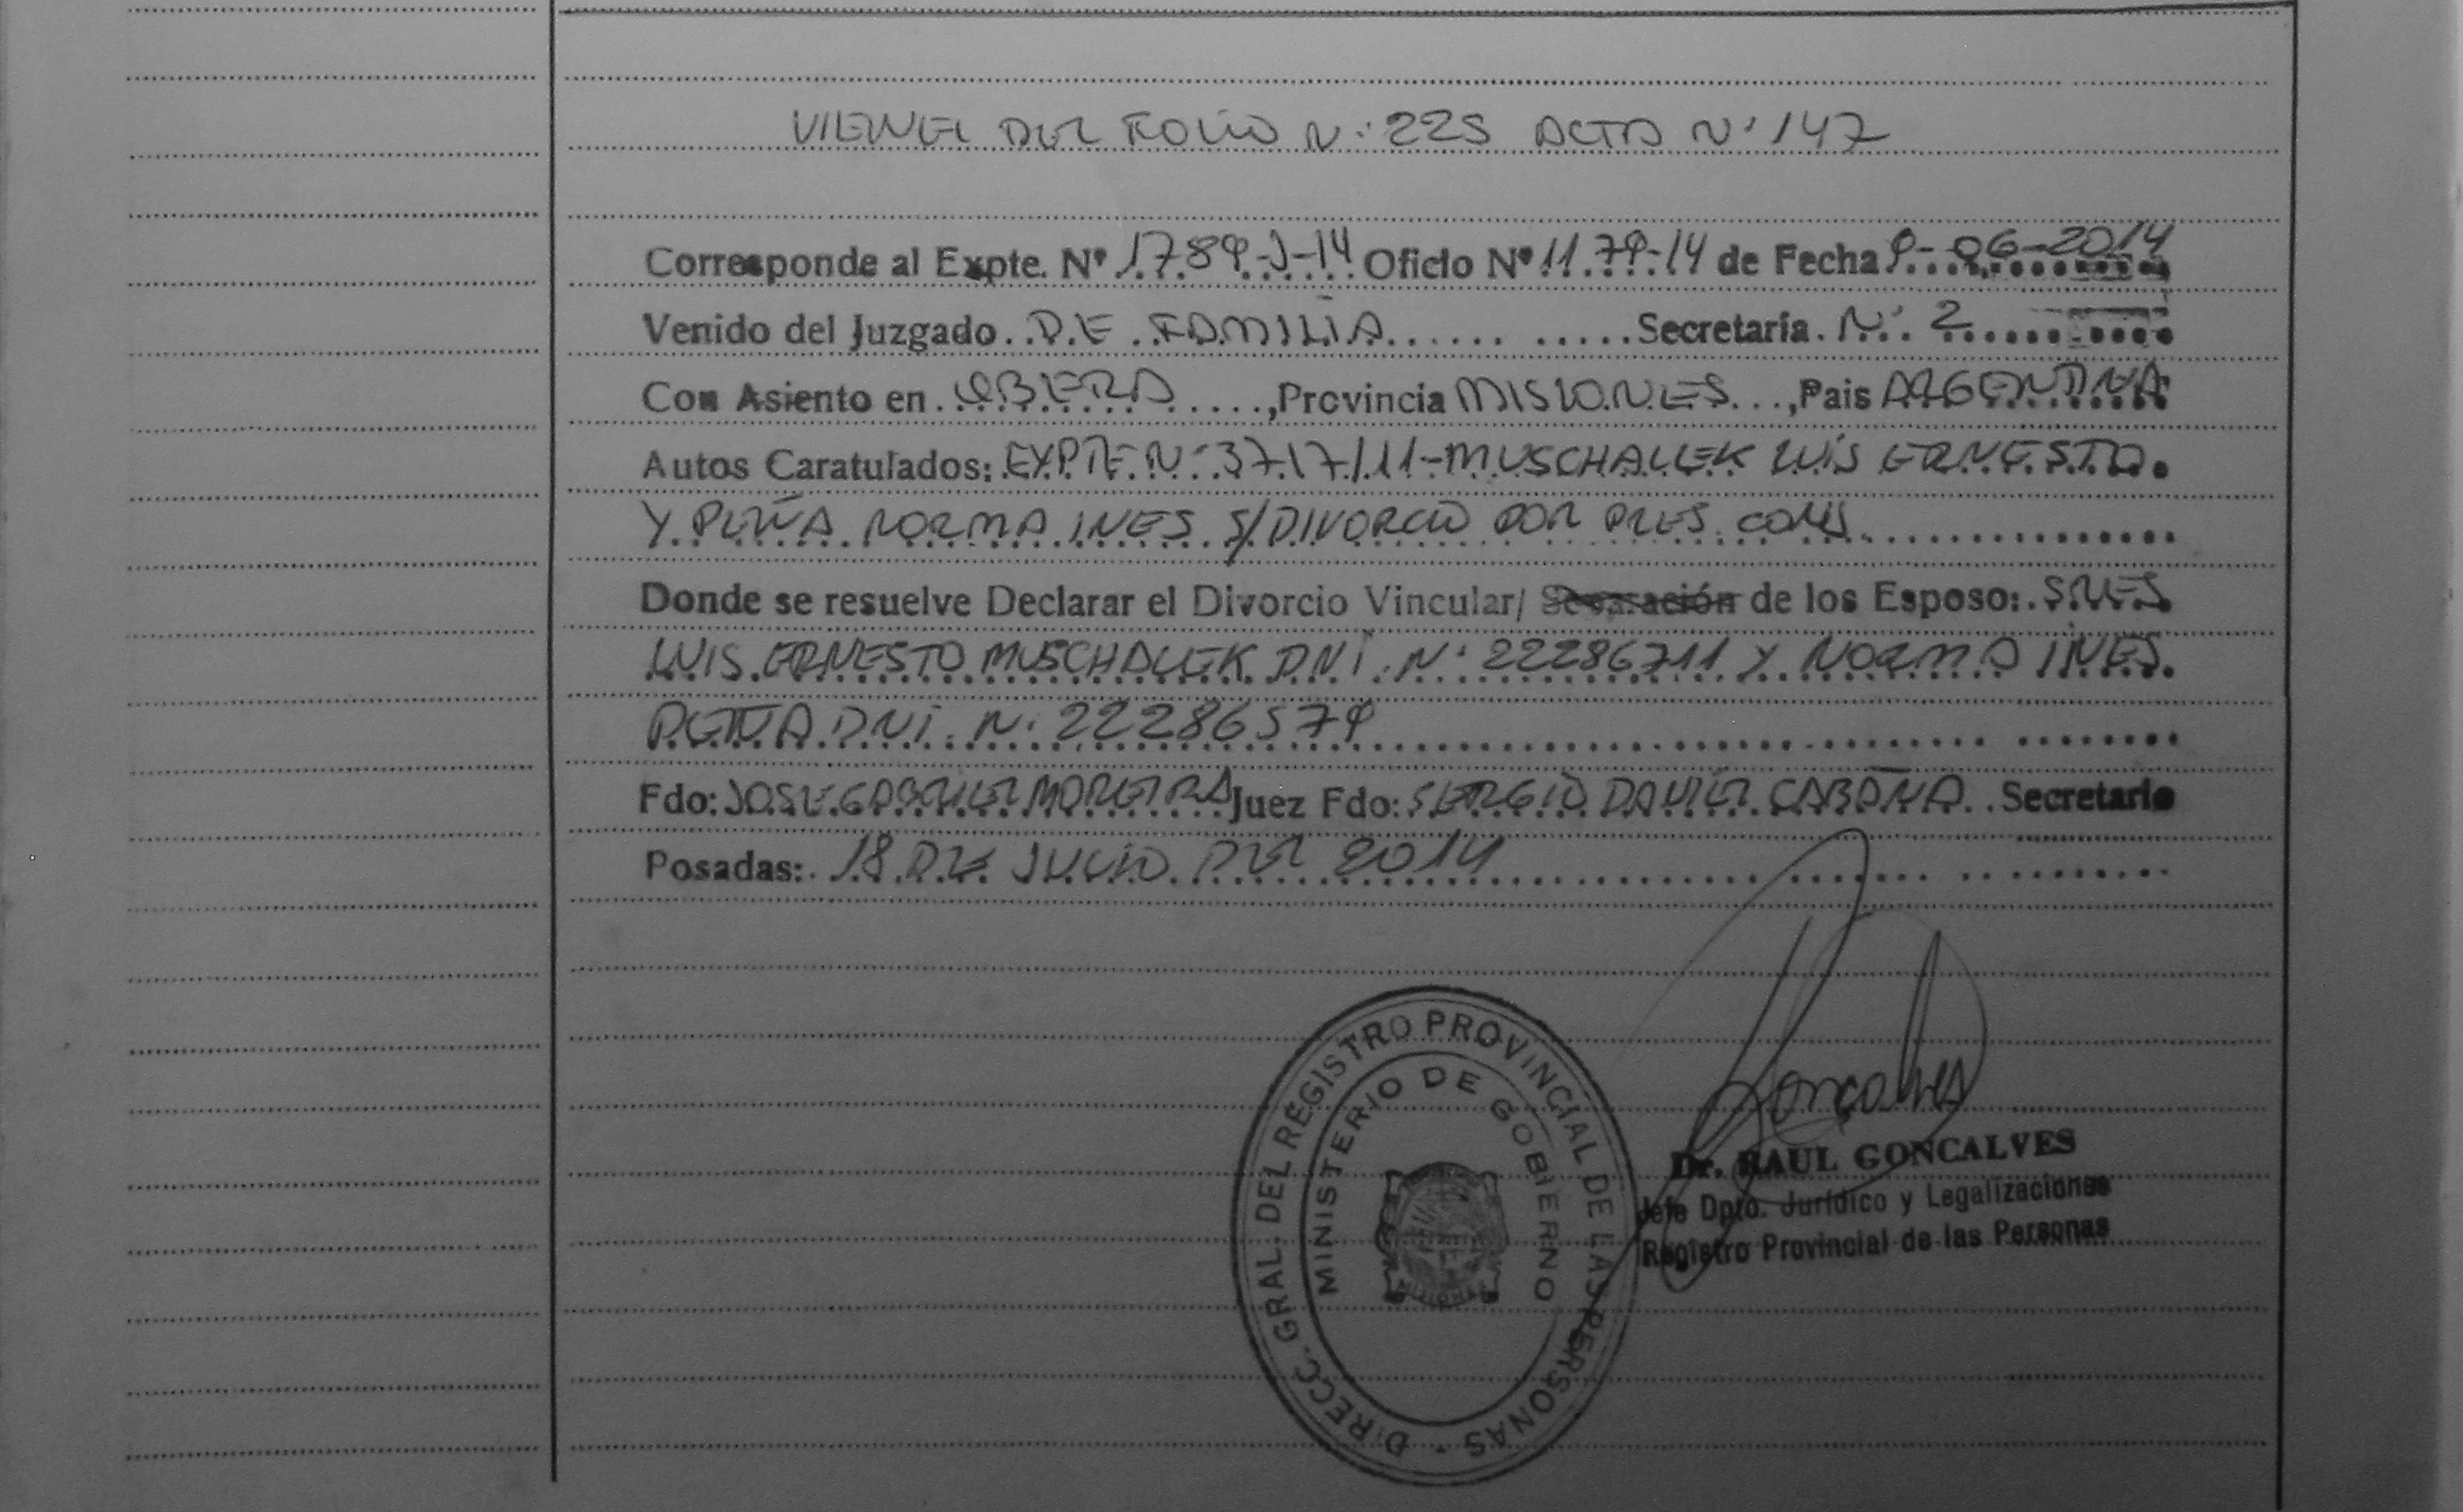 VIENEL DEL FOLIO N: 225 ACTA N: 147
Corresponde al Expte. Nº 1789-J-14 Oficio Nº 1179-14 de Fecha 9-06-2014
Venido del Juzgado DE FAMILIA Secretaría N: 2
Con Asiento en OBERA, Provincia MISIONES, Pais ARGENTINA
Autos Caratulados: EXPTE N: 3717/11-MUSCHALLEK LUIS ERNESTO
Y PEÑA NORMA INES S/DIVORCIO POR PRES. CONJ.
Donde se resuelve Declarar el Divorcio Vincular/ Separación de los Esposo: SRES
LUIS ERNESTO MUSCHALLEK DNI N: 22286711 Y NORMA INES
PEÑA DNI N: 22286579
Fdo: JOSE GABRIEL MOREIRA Juez Fdo: SERGIO DANIEL CABAÑA Secretario
Posadas: 18 DE JULIO DEL 2014
DIRECC. GRAL. DEL REGISTRO PROVINCIAL DE LAS PERSONAS
MINISTERIO DE GOBIERNO
MISIONES
Goncalves
Dr. RAUL GONCALVES
Jefe Dpto. Jurídico y Legalizaciones
Registro Provincial de las Personas